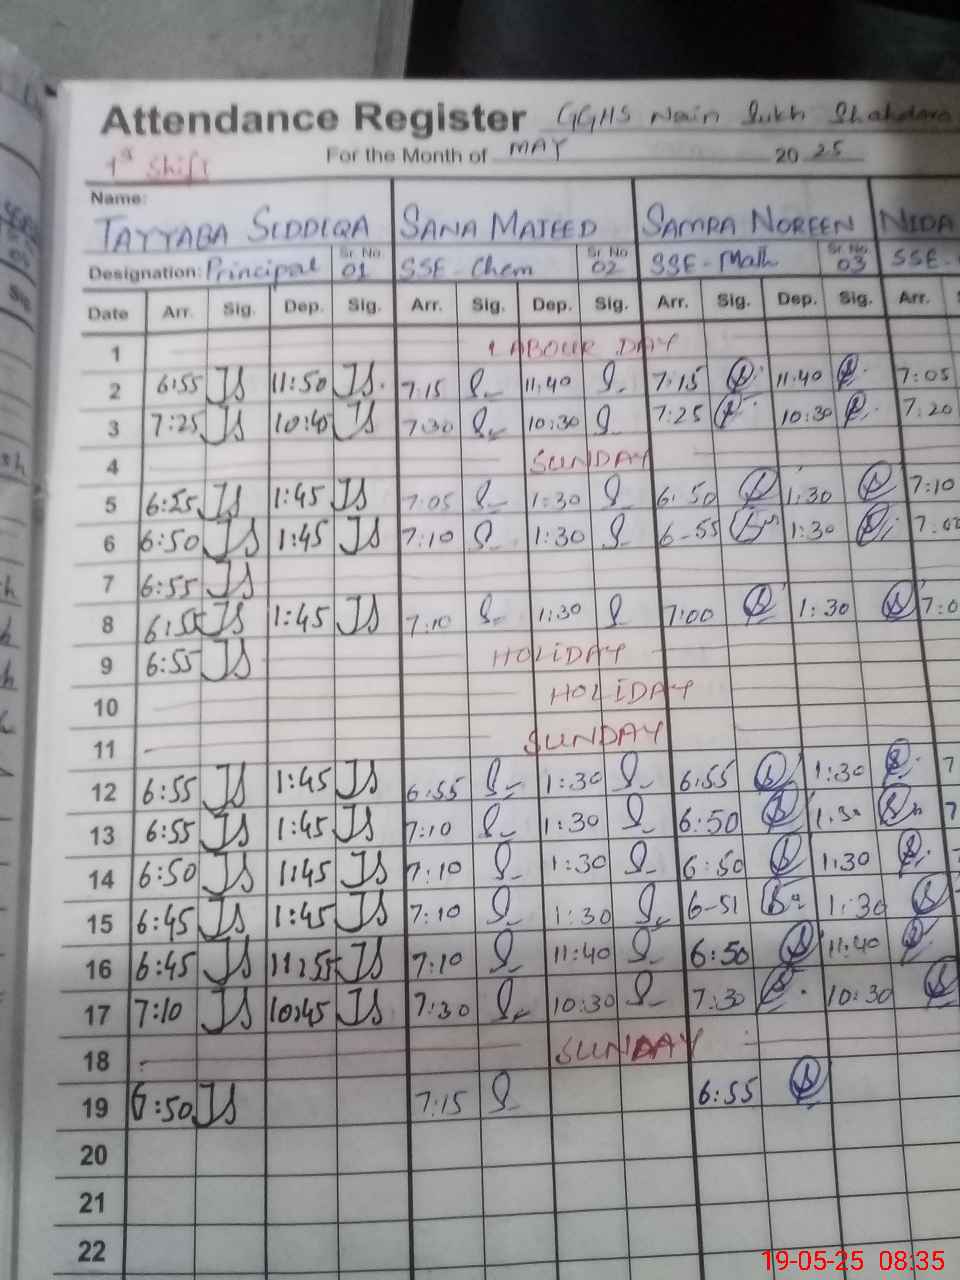 Attendance Register GGHS Nain Sukh Shahdara
1st Shift For the Month of MAY 20 25
Name:
TAYYABA SIDDIQA SANA MAJEED SAMRA NOREEN NIDA
Designation: Principal Sr. No 01 SSE-Chem Sr. No 02 SSE-Math Sr. No 03 SSE-
Date Arr. Sig. Dep. Sig. Arr. Sig. Dep. Sig. Arr. Sig. Dep. Sig. Arr.
1 LABOUR DAY
2 6:55 JS 11:50 JS. 7:15 11:40 7:15 11:40 7:05
3 7:25 JS 10:40 JS 7:30 10:30 7:25 10:30 7:20
4 SUNDAY
5 6:55 JS 1:45 JS 7:05 1:30 6:50 1:30 7:10
6 6:50 JS 1:45 JS 7:10 1:30 6-55 1:30
7 6:55 JS
8 6:55 JS 1:45 JS 7:10 1:30 7:00 1:30
9 6:55 JS HOLIDAY
10 HOLIDAY
11 SUNDAY
12 6:55 JS 1:45 JS 6:55 1:30 6:55 1:30 7
13 6:55 JS 1:45 JS 7:10 1:30 6:50 1.30 7
14 6:50 JS 1:45 JS 7:10 1:30 6:50 1:30
15 6:45 JS 1:45 JS 7:10 1:30 6-51 1:30
16 6:45 JS 11:55 JS 7:10 11:40 6:50 11:40
17 7:10 JS 10:45 JS 7:30 10:30 7:30 10:30
18 SUNDAY
19 6:50 JS 7:15 6:55
20
21
22
19-05-25 08:35